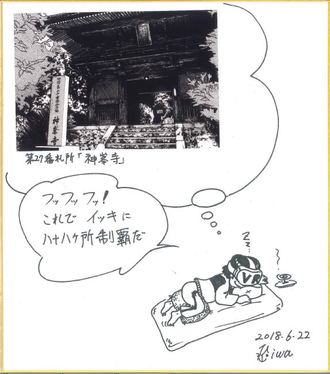 神峯寺
第27番札所「神峯寺」
フッフッフッ!
これで イッキに
八十八ケ所制覇だ
VR
2018.6.22
iwa